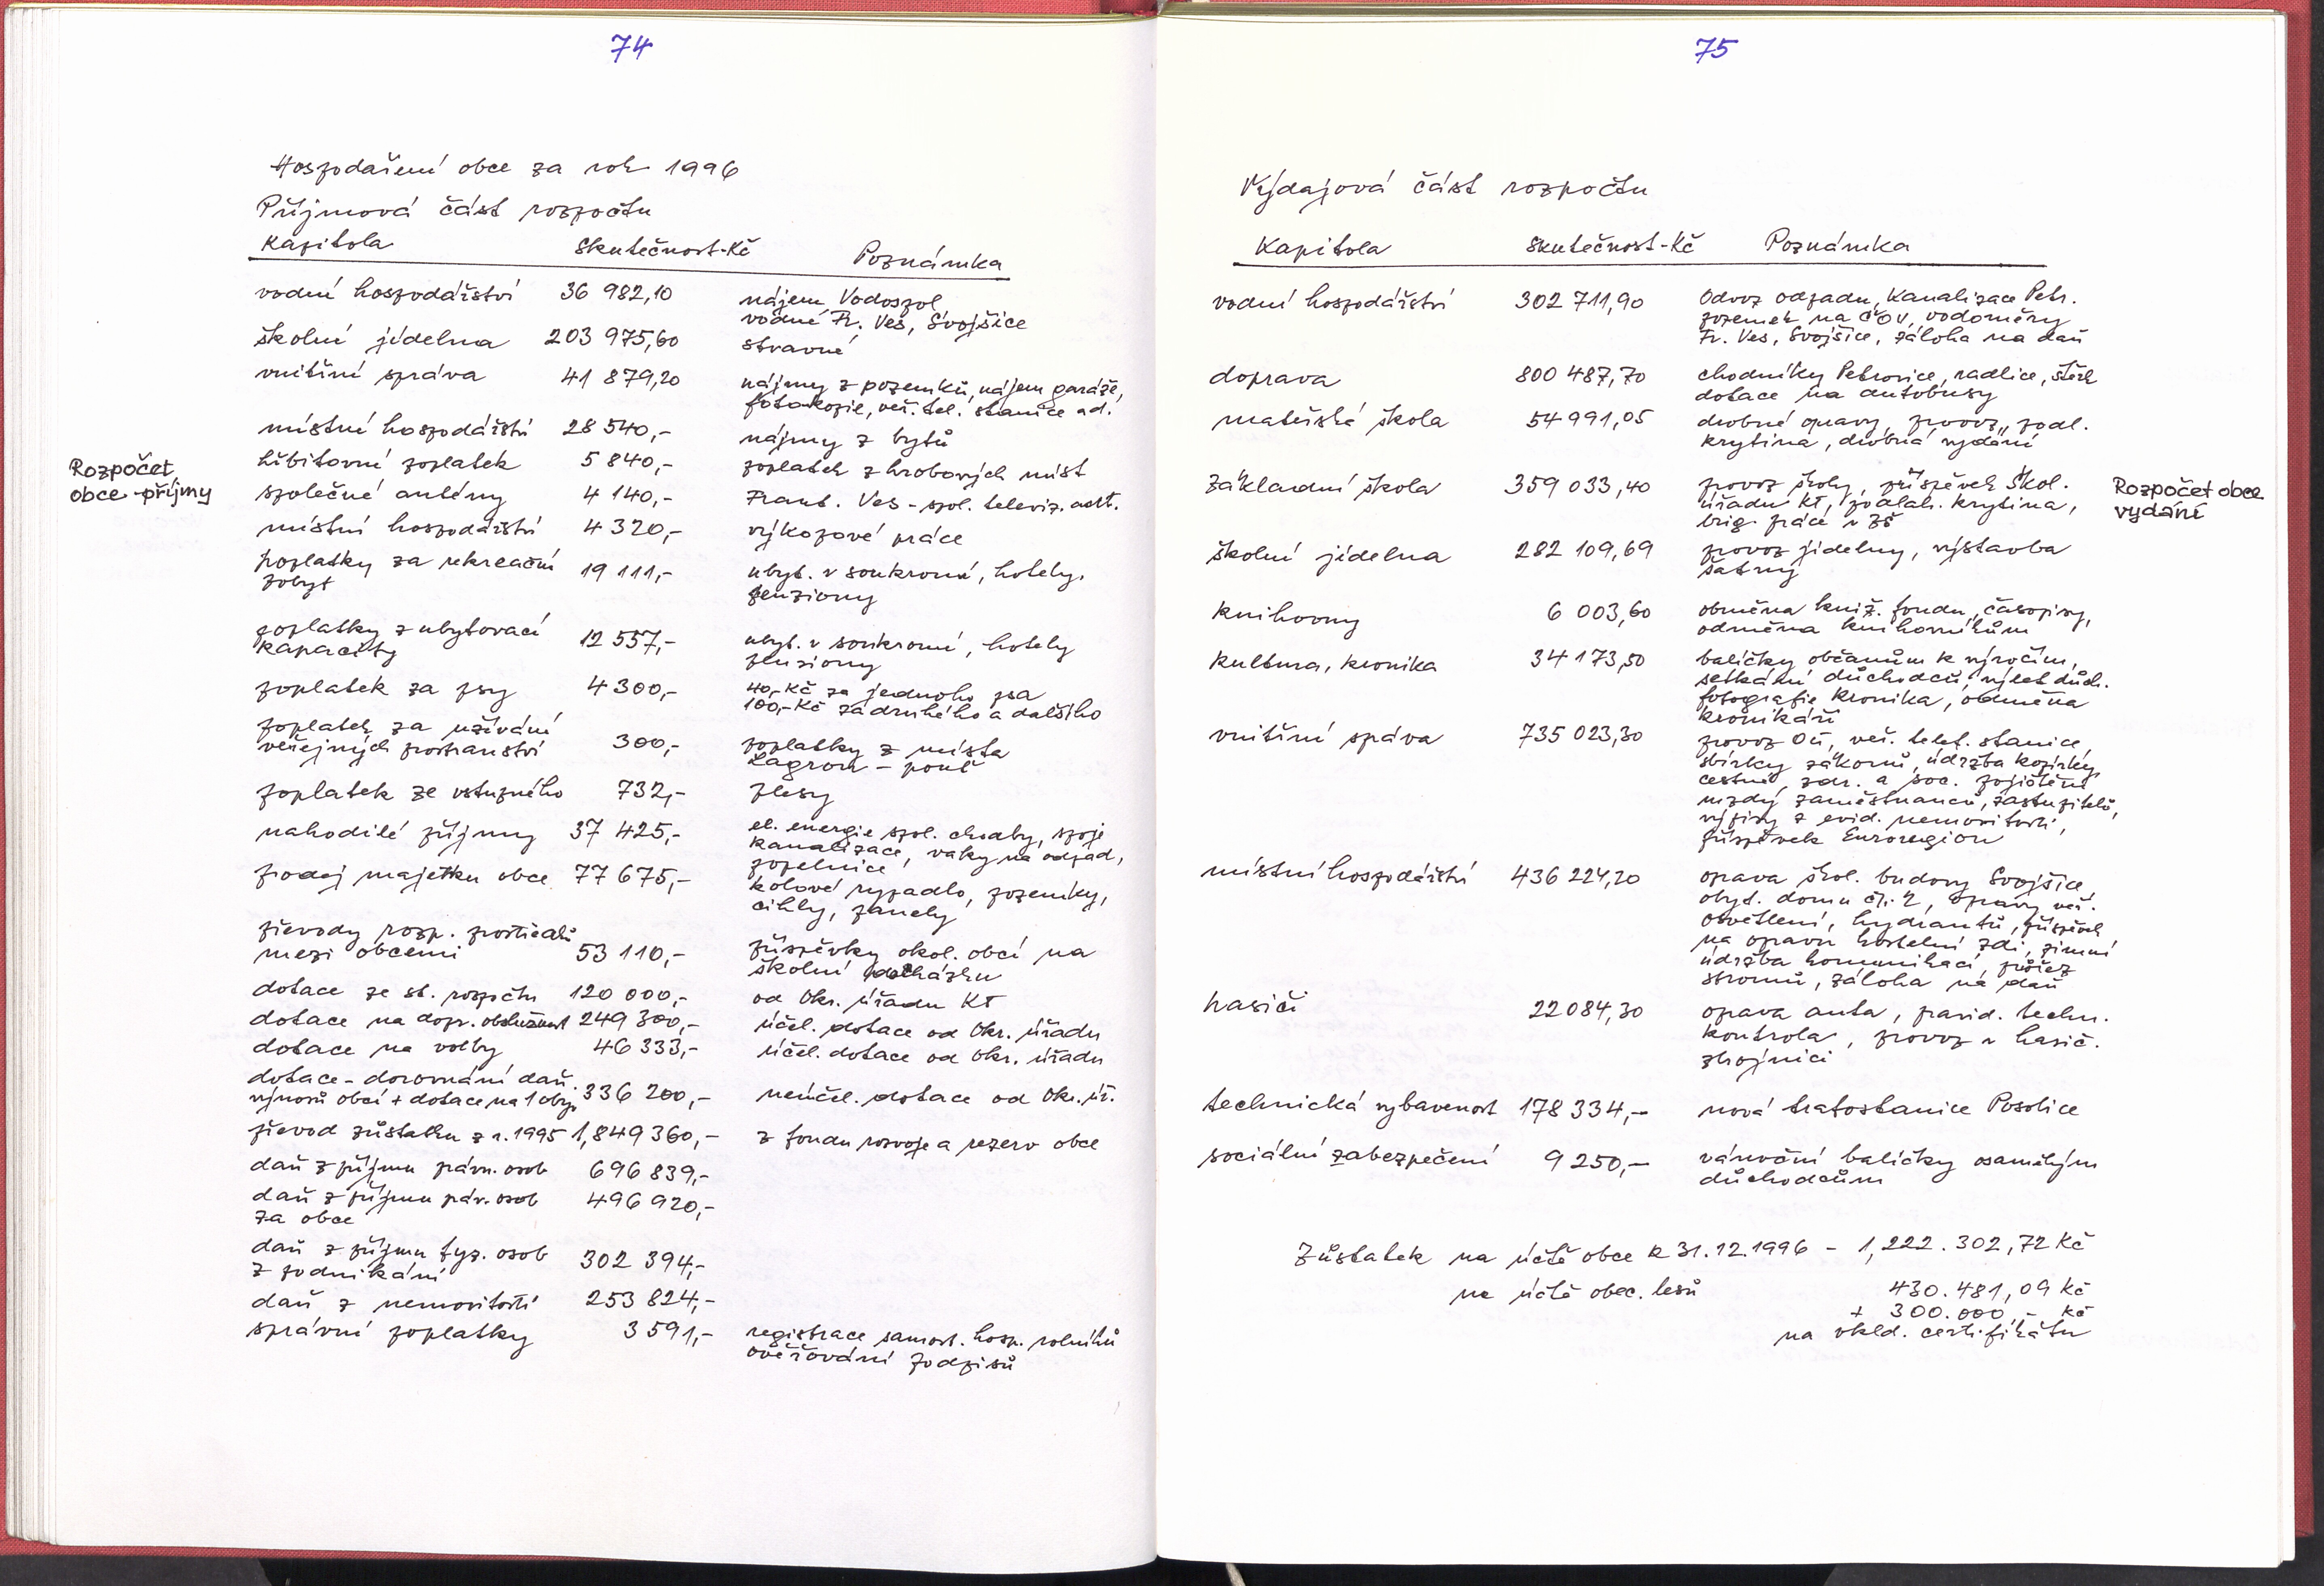 74
Hospodaření obce za rok 1996
Příjmová část rozpočtu
Kapitola Skutečnost-Kč Poznámka
vodní hospodářství 36 982,10 nájem Vodospol
vodné Fr. Ves, Svojšice
školní jídelna 203 975,60 stravné
vnitřní správa 41 879,20 nájmy z pozemků, nájem garáže,
fotokopie, veř. tel. stanice ad.
místní hospodářství 28 540,- nájmy z bytů
hřbitovní poplatek 5 840,- poplatek z hrobových míst
Rozpočet
obce-příjmy
společné antény 4 140,- Frant. Ves - spol. televiz. ant.
místní hospodářství 4 320,- výkopové práce
poplatky za rekreační
pobyt 19 111,- ubyt. v soukromí, hotely,
penziony
poplatky z ubytovací
kapacity 12 557,- ubyt. v soukromí, hotely
penziony
poplatek za psy 4 300,- 40,-Kč za jednoho psa
100,-Kč za druhého a dalšího
poplatek za užívání
veřejných prostranství 300,- poplatky z místa
Lagron - pouť
poplatek ze vstupného 732,- plesy
nahodilé příjmy 37 425,- el. energie spol. chodby, spoje
kanalizace, vaky na odpad,
popelnice
prodej majetku obce 77 675,- kolové rypadlo, pozemky,
cihly, panely
převody rozp. prostředků
mezi obcemi 53 110,- příspěvky okol. obcí na
školní docházku
dotace ze st. rozpočtu 120 000,- od Okr. úřadu KT
dotace na dopr. obslužnost 249 300,- účel. dotace od Okr. úřadu
dotace na volby 46 333,- účel. dotace od Okr. úřadu
dotace - dorovnání daň.
výnosů obcí + dotace na 1 oby. 336 200,- neúčel. dotace od Okr. úř.
převod zůstatku z r. 1995 1,849 360,- z fondu rozvoje a rezerv obce
daň z příjmu práv. osob 696 839,-
daň z příjmu práv. osob 496 920,-
za obce
daň z příjmu fyz. osob
z podnikání 302 394,-
daň z nemovitostí 253 824,-
správní poplatky 3 591,- registrace samost. hosp. rolníků
ověřování podpisů
75
Výdajová část rozpočtu
Kapitola Skutečnost-Kč Poznámka
vodní hospodářství 302 711,90 Odvoz odpadu, Kanalizace Petr.
pozemek na ČOV, vodoměry
Fr. Ves, Svojšice, záloha na daň
doprava 800 487,70 chodníky Petrovice, radlice, štěrk
dotace na autobusy
mateřská škola 54 991,05 drobné opravy, provoz, podl.
krytina, drobná vydání
základní škola 359 033,40 provoz školy, příspěvek Škol.
úřadu KT, podlah. krytina,
brig. práce v ZŠ
Rozpočet obce
vydání
školní jídelna 282 109,69 provoz jídelny, výstavba
šatny
knihovny 6 003,60 obměna kniž. fondu, časopisy,
odměna knihovníkům
kultura, kronika 34 173,50 balíčky občanům k výročím,
setkání důchodců, výlet důch.
fotografie kronika, odměna
kronikáři
vnitřní správa 735 023,30 provoz OÚ, veř. telef. stanice,
sbírky zákonů, údržba kopírky,
cestné, zdr. a soc. pojištění
mzdy zaměstnanců, zastupitelů,
výpisy z evid. nemovitostí,
příspěvek Euroregion
místní hospodářství 436 224,20 oprava škol. budovy Svojšice,
obyt. domu čp. 2, opravy veř.
osvětlení, hydrantů, příspěvek
na opravu kostelní zdi, zimní
údržba komunikací, průřez
stromů, záloha na daň
hasiči 22 084,30 oprava auta, pravid. techn.
kontrola, provoz v hasič.
zbrojnici
technická vybavenost 178 334,- nová trafostanice Posobice
sociální zabezpečení 9 250,- vánoční balíčky osamělým
důchodcům
Zůstatek na účtě obce k 31.12.1996 - 1,222.302,72 Kč
na účtě obec. lesů 430.481,09 Kč
+ 300.000,- Kč
na vklad. certifikátu